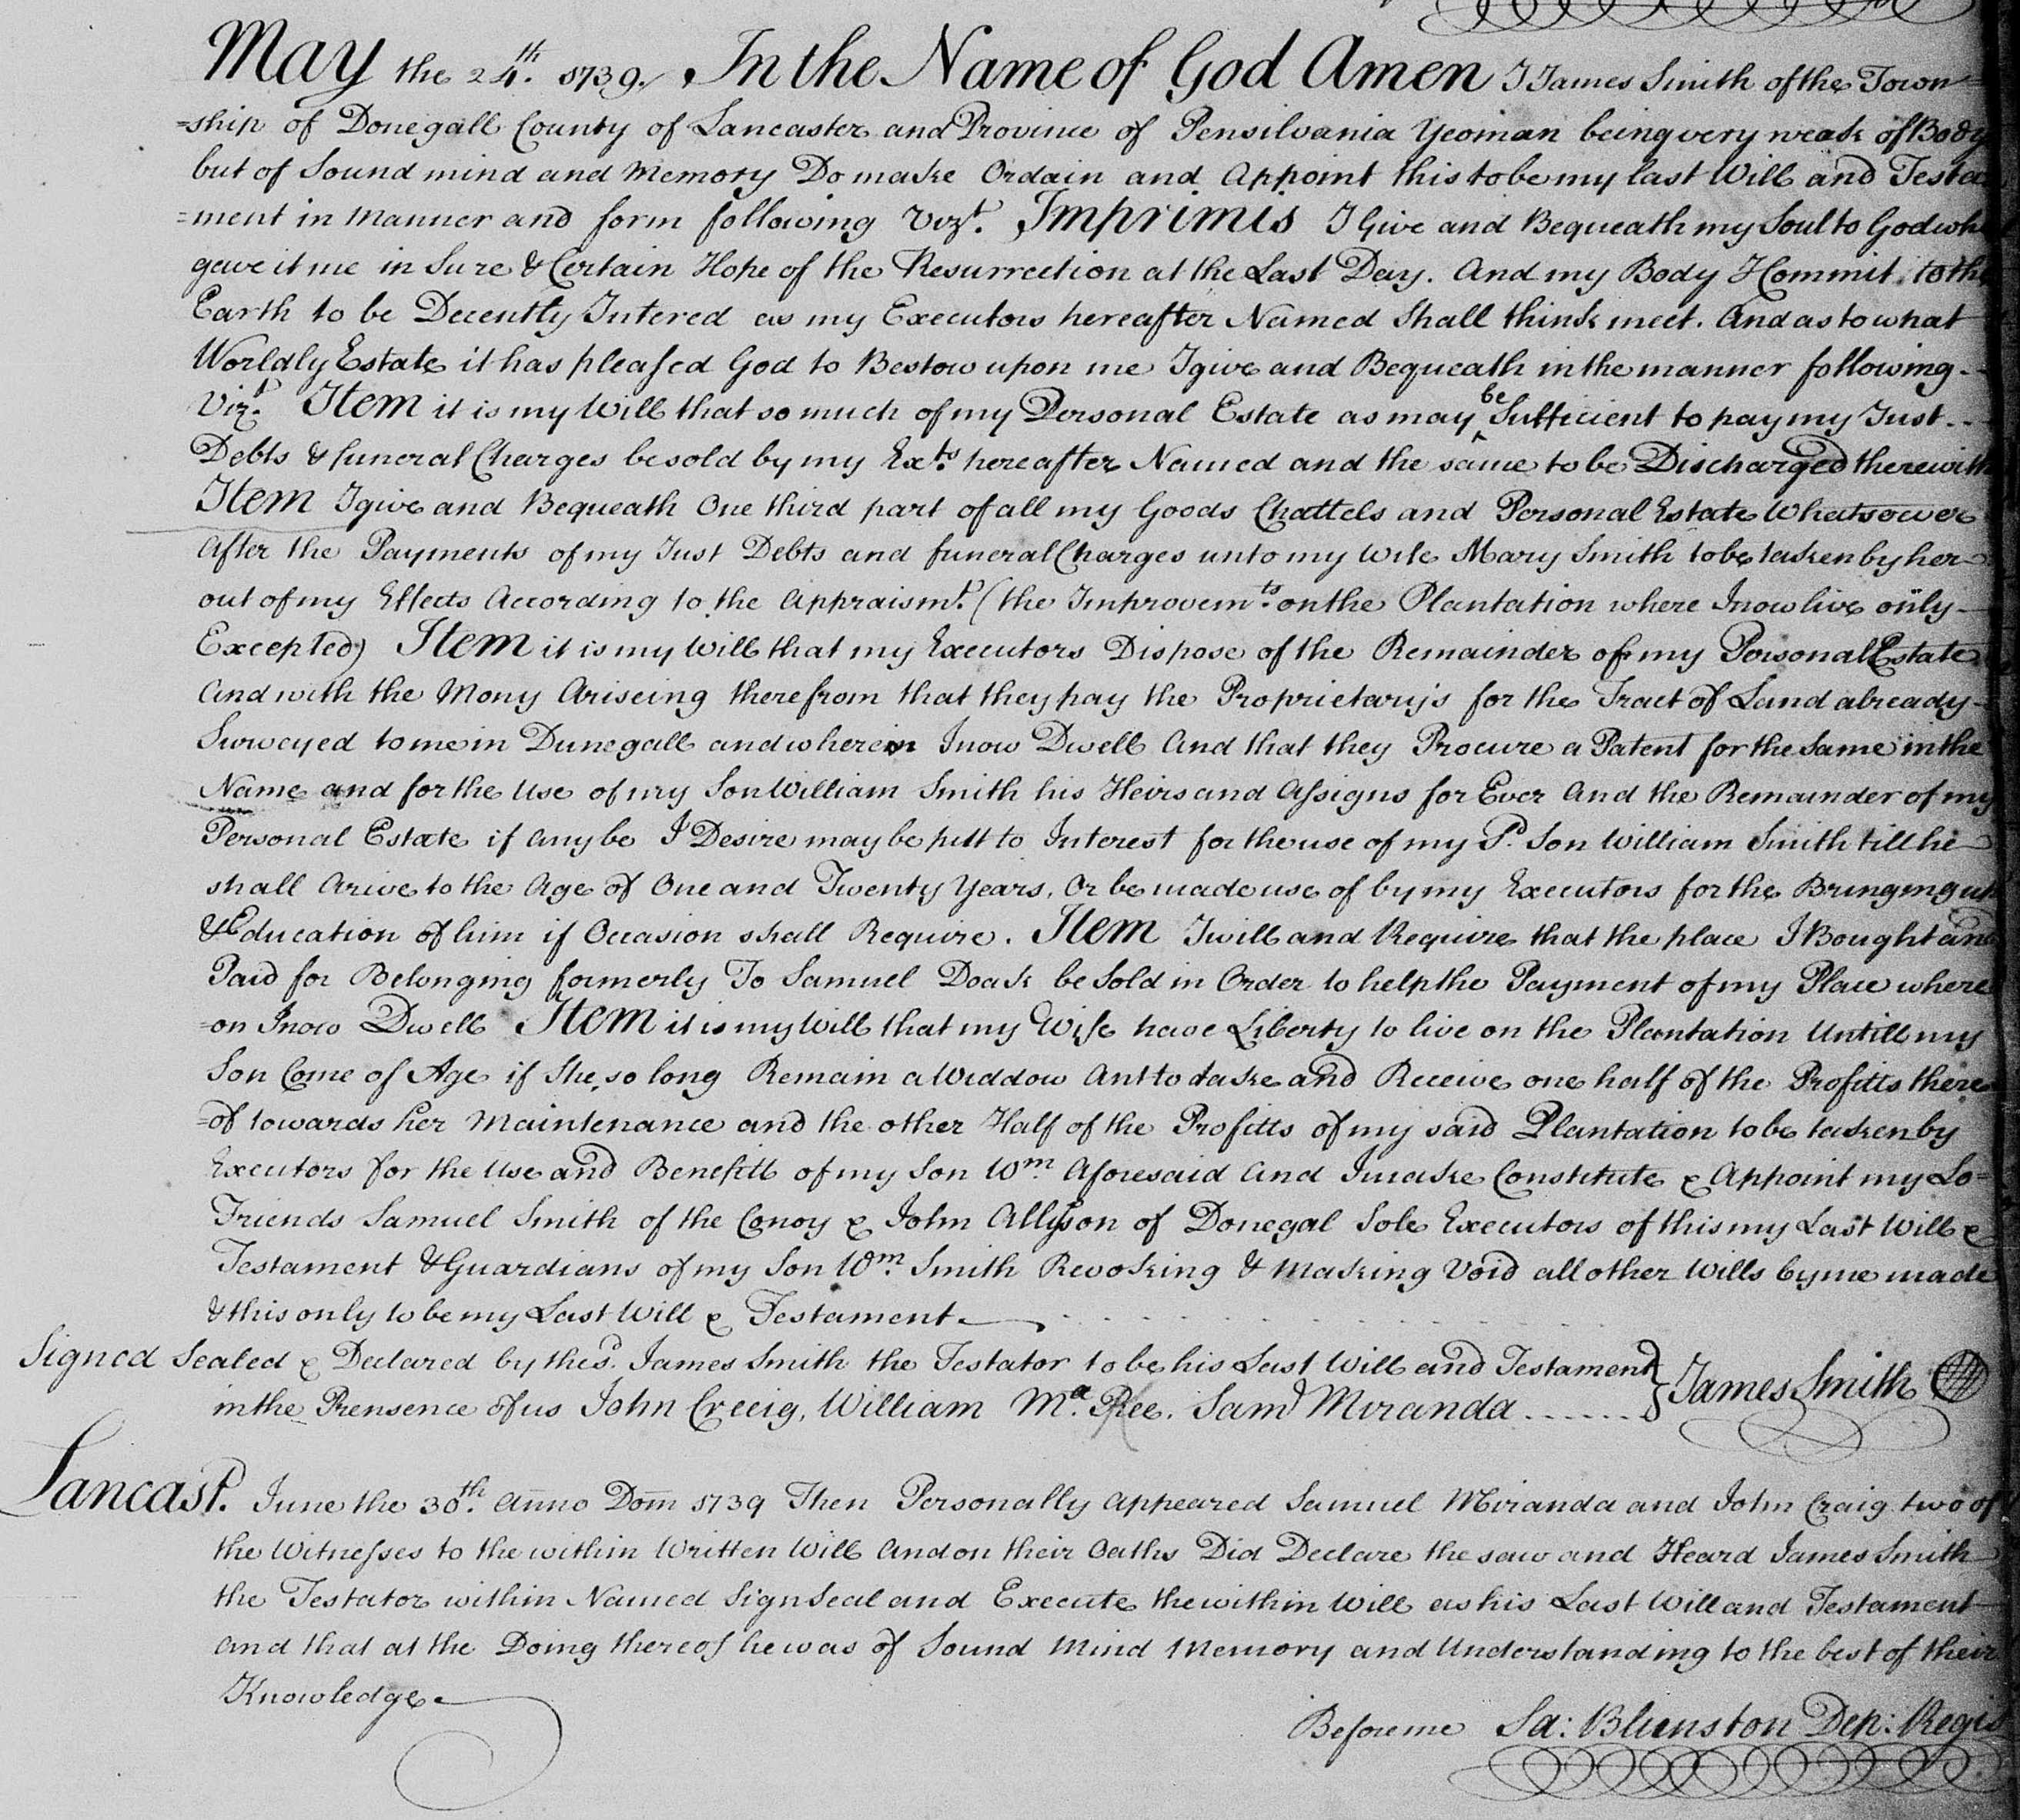 May the 24th. 1739. In the Name of God Amen I James Smith of the Town=
=ship of Donegall County of Lancaster and Province of Pensilvania Yeoman being very weak of Body
but of Sound mind and Memory Do make Ordain and Appoint this to be my last Will and Testa
=ment in Manner and form following Vizt. Imprimis I Give and Bequeath my Soul to God who
gave it me in Sure & Certain Hope of the Resurrection at the Last Day. And my Body I Commit to the
Earth to be Decently Intered as my Executors hereafter Named Shall think meet. And as to what
Worldly Estate it has pleased God to Bestow upon me I give and Bequeath in the manner following -
Vizt. Item it is my Will that so much of my Personal Estate as may be Sufficient to pay my Just --
Debts & funeral Charges be sold by my Exts. hereafter Named and the same to be Discharged therewith
Item I give and Bequeath One third part of all my Goods Chattels and Personal Estate Whatsoever
After the Payments of my Just Debts and funeral Charges unto my Wife Mary Smith to be taken by her
out of my Effects According to the Appraismt. (the Improvemts. on the Plantation where I now live only -
Excepted) Item it is my Will that my Executors Dispose of the Remainder of my Personal Estate
And with the Mony Ariseing therefrom that they pay the Proprietary's for the Tract of Land already -
Surveyed to me in Dunegall and wherein I now Dwell And that they Procure a Patent for the Same in the
Name and for the Use of my Son William Smith his Heirs and Assigns for Ever And the Remainder of my
Personal Estate if any be I Desire may be putt to Interest for the use of my Sd. Son William Smith till he
shall Arive to the Age of One and Twenty Years, Or be made use of by my Executors for the Bringing up
& Education of him if Occasion shall Require. Item I will and Require that the place I Bought and
Paid for Belonging formerly To Samuel Doak be Sold in Order to help the Payment of my Place where
=on I now Dwell Item it is my Will that my Wife have Liberty to live on the Plantation Untill my
Son Come of Age if She so long Remain a Widdow Ant to take and Receive one half of the Profitts there
=of towards her Maintenance and the other Half of the Profitts of my said Plantation to be taken by
Executors for the Use and Benefitt of my Son Wm. Aforesaid And I make Constitute & Appoint my Lo=
Friends Samuel Smith of the Conoy & John Allyson of Donegal Sole Executors of this my Last Will &
Testament & Guardians of my Son Wm. Smith Revoking & Making Void all other Wills by me made
& this only to be my Last Will & Testament
Signed Sealed & Declared by the sd. James Smith the Testator to be his Last Will and Testament
in the Prensence of us John Creeig, William Ma. Ree. Saml Miranda ...... James Smith
Lancastr. June the 30th. Anno Dom 1739 Then Personally Appeared Samuel Miranda and John Craig two of
the Witnesses to the within Written Will And on their Oaths Did Declare the saw and Heard James Smith
the Testator within Named Sign Seal and Execute the within Will as his Last Will and Testament
And that at the Doing thereof he was of Sound Mind Memory and Understanding to the best of their
Knowledge
Before me Sa: Blunston Dep: Regis